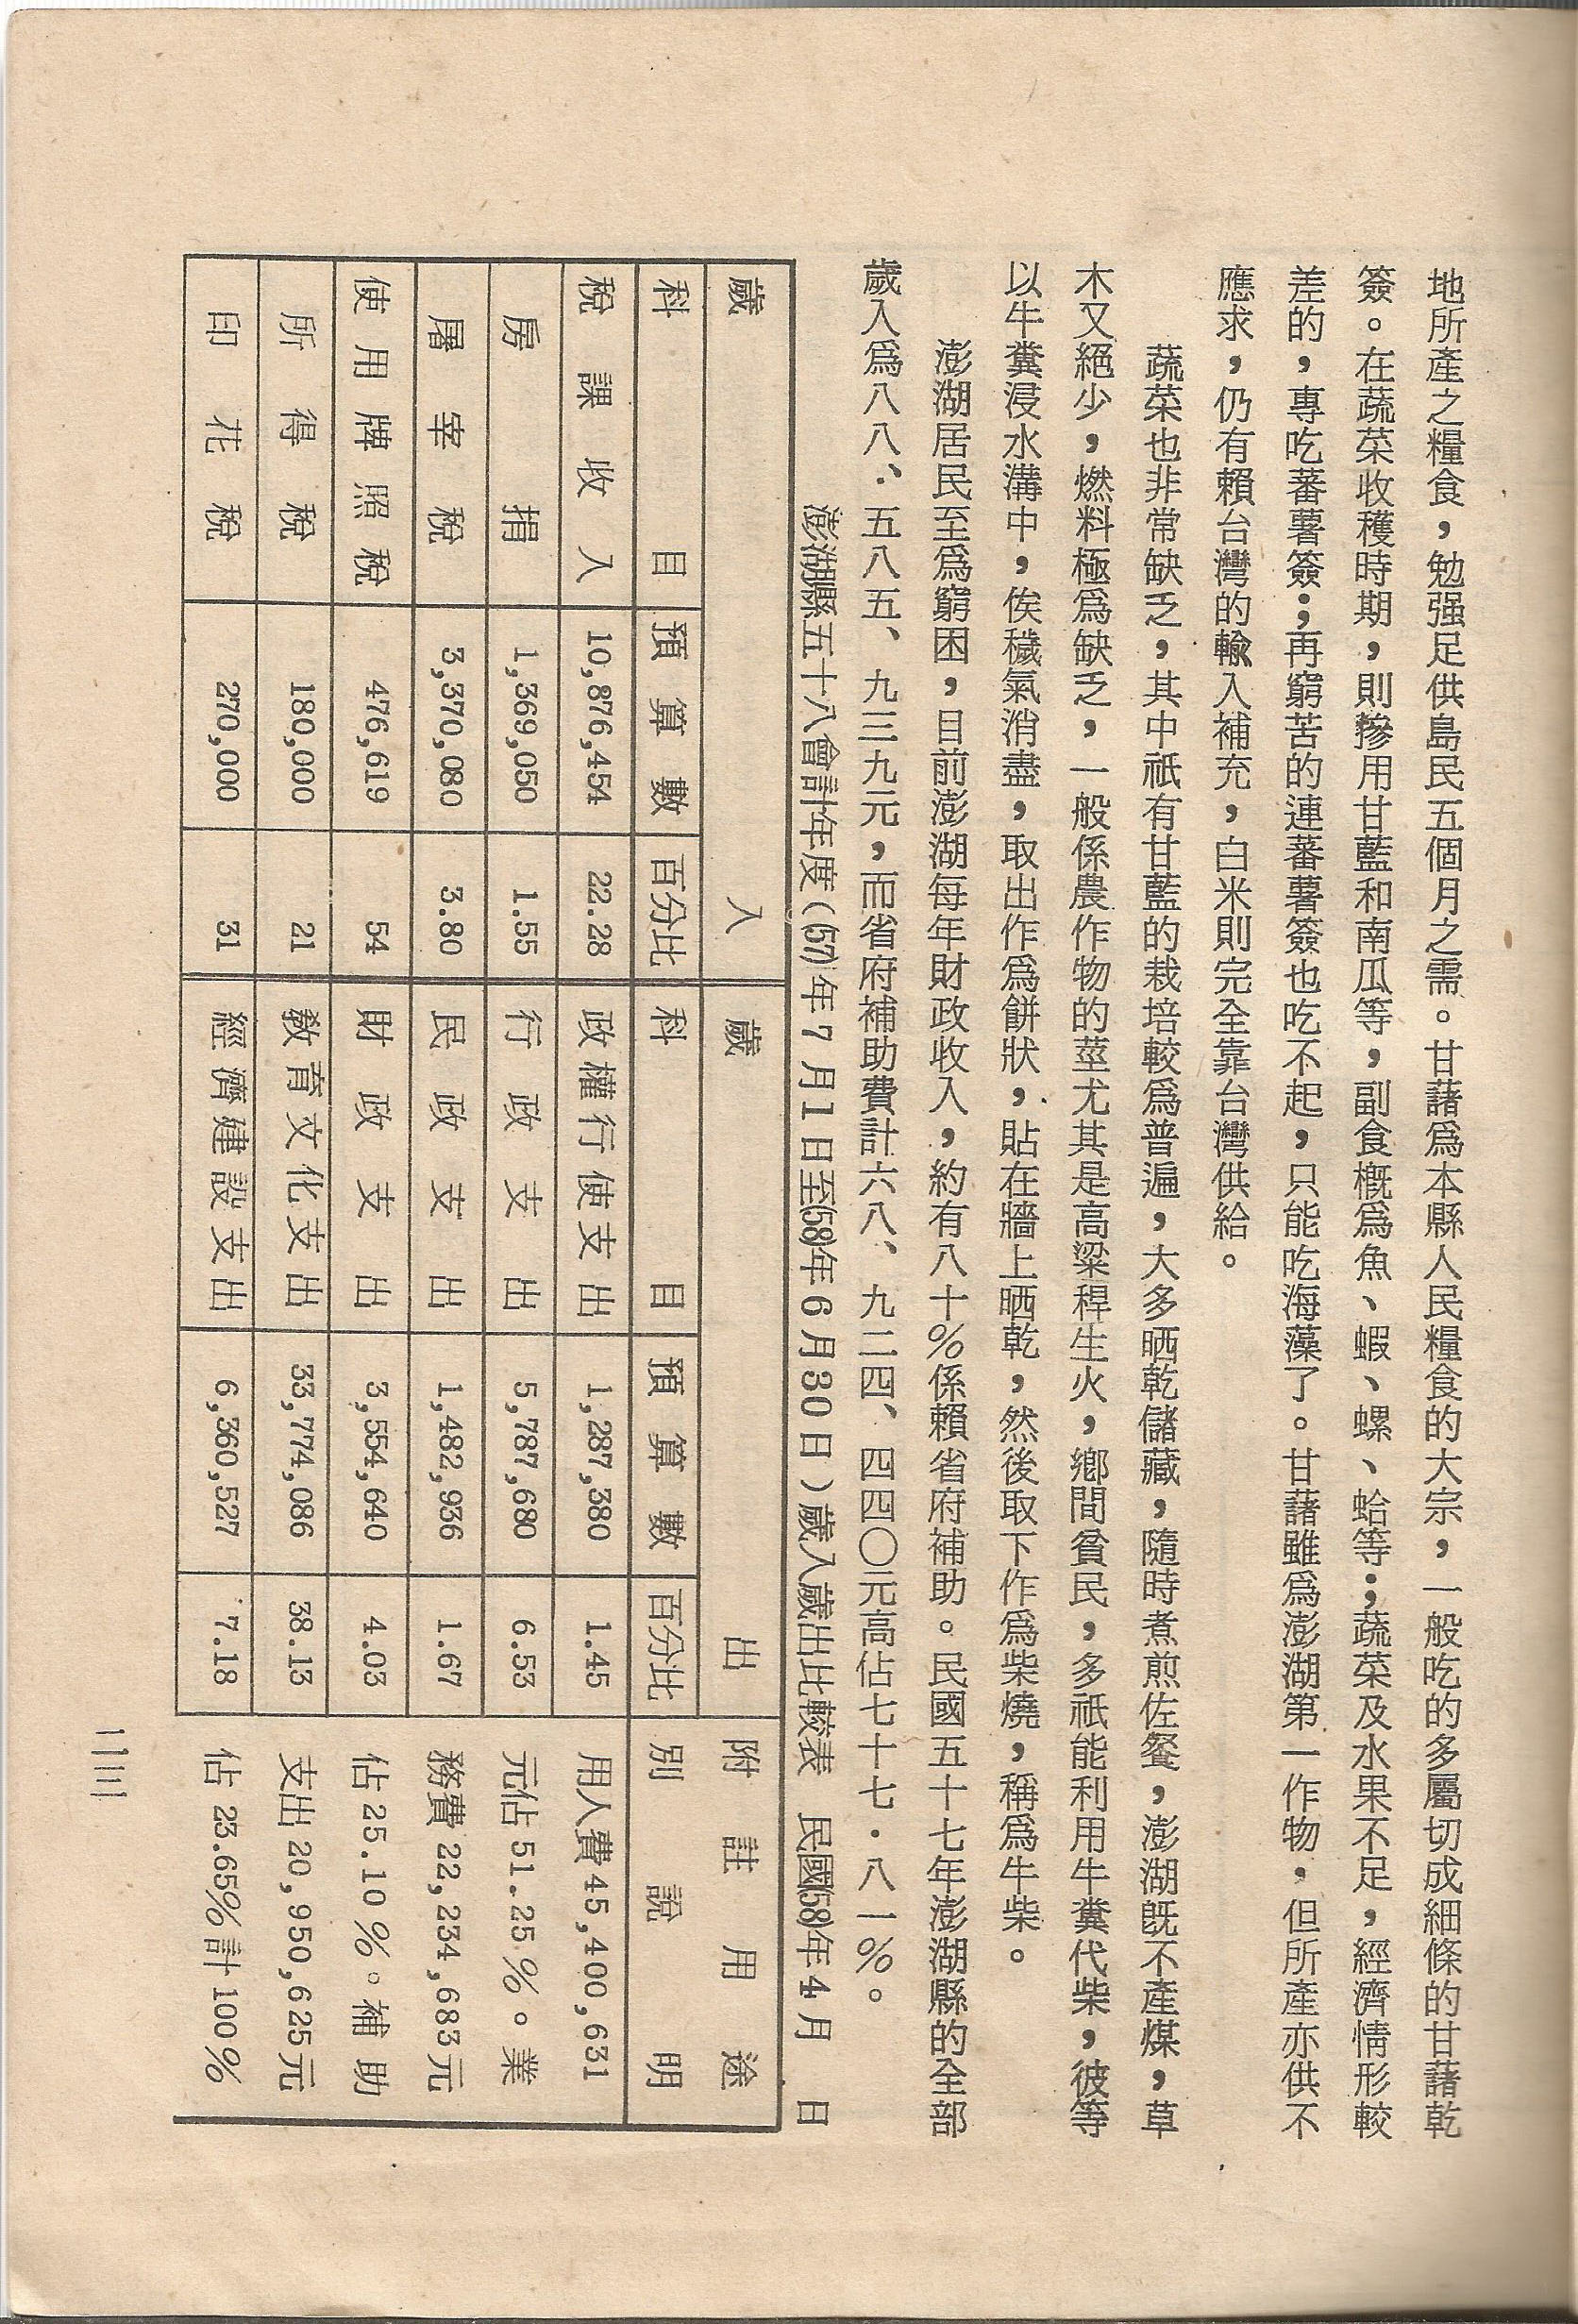 地所產之糧食，勉强足供島民五個月之需。甘藷爲本縣人民糧食的大宗，一般吃的多屬切成細條的甘藷乾
簽。在蔬菜收穫時期，則摻用甘藍和南瓜等，副食槪爲魚、蝦、螺、蛤等；蔬菜及水果不足，經濟情形較
差的，專吃蕃薯簽；再窮苦的連蕃薯簽也吃不起，只能吃海藻了。甘藷雖爲澎湖第一作物，但所產亦供不
應求，仍有賴台灣的輸入補充，白米則完全靠台灣供給。
蔬菜也非常缺乏，其中祇有甘藍的栽培較爲普遍，大多晒乾儲藏，隨時煮煎佐餐，澎湖旣不產煤，草
木又絕少，燃料極爲缺乏，一般係農作物的莖尤其是高粱稈生火，鄉間貧民，多祇能利用牛糞代柴，彼等
以牛糞浸水溝中，俟穢氣消盡，取出作爲餅狀，貼在牆上晒乾，然後取下作爲柴燒，稱爲牛柴。
澎湖居民至爲窮困，目前澎湖每年財政收入，約有八十％係賴省府補助。民國五十七年澎湖縣的全部
歲入爲八八、五八五、九三九元，而省府補助費計六八、九二四、四四〇元高佔七十七・八一％。
澎湖縣五十八會計年度（(57)年7月1日至(58)年6月30日）歲入歲出比較表　民國(58)年4月　日
歲入　歲出　附註用途
科目　預算數　百分比　科目　預算數　百分比　別說明
稅課收入　10,876,454　22.28　政權行使支出　1,287,380　1.45　用人費45,400,631
房捐　1,369,050　1.55　行政支出　5,787,680　6.53　元佔51.25％。業
屠宰稅　3,370,080　3.80　民政支出　1,482,936　1.67　務費22,234,683元
使用牌照稅　476,619　54　財政支出　3,554,640　4.03　佔25.10％。補助
所得稅　180,000　21　教育文化支出　33,774,086　38.13　支出20,950,625元
印花稅　270,000　31　經濟建設支出　6,360,527　7.18　佔23.65％計100％
一三三